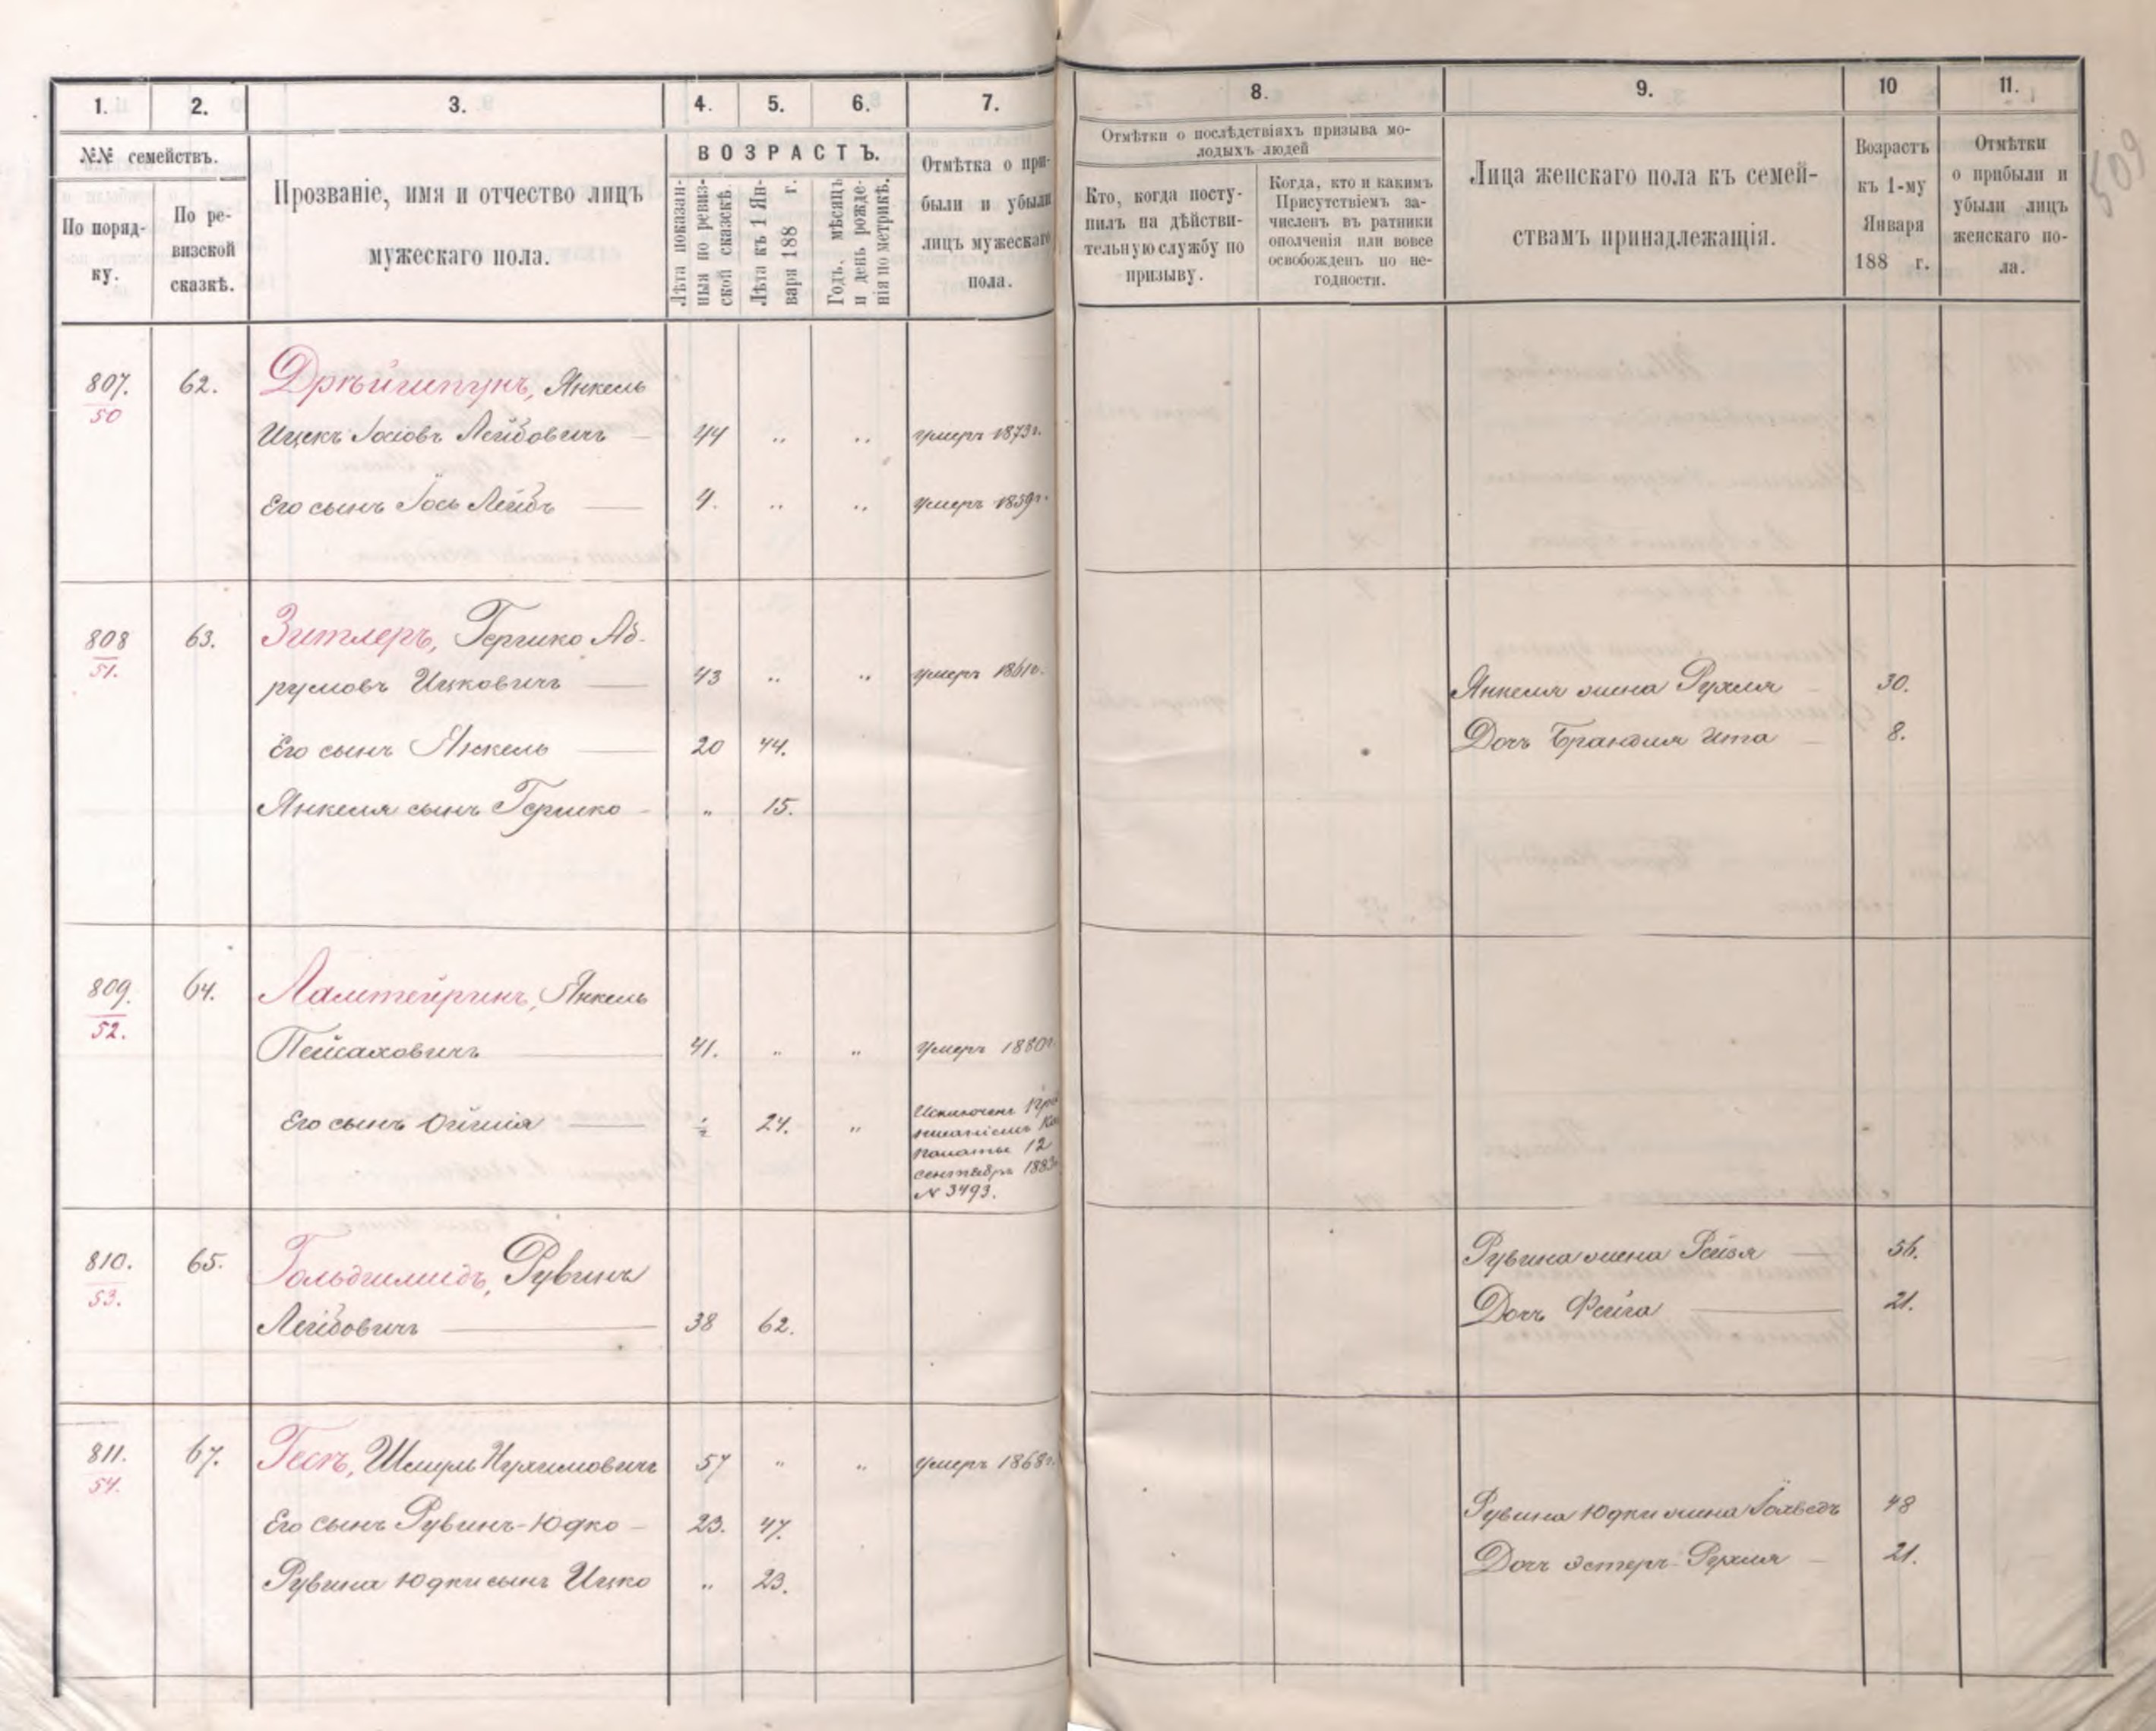 509
1.
2.
3.
4.
5.
6.
7.
8.
9.
10
11.
№№ семействъ.
По поряд-
ку.
По ре-
визской
сказкѣ.
Прозваніе, имя и отчество лицъ
мужескаго пола.
ВОЗРАСТЪ.
Лѣта показан-
ныя по ревиз-
ской сказкѣ.
Лѣта къ 1 Ян-
варя 188 г.
Годъ, мѣсяцъ
и день рожде-
нія по метрикѣ.
Отмѣтка о при-
были и убыли
лицъ мужескаго
пола.
Отмѣтки о послѣдствіяхъ призыва мо-
лодыхъ людей
Кто, когда посту-
пилъ на дѣйстви-
тельную службу по
призыву.
Когда, кто и какимъ
Присутствіемъ за-
численъ въ ратники
ополченія или вовсе
освобожденъ по не-
годности.
Лица женскаго пола къ семей-
ствамъ принадлежащія.
Возрастъ
къ 1-му
Января
188 г.
Отмѣтки
о прибыли и
убыли лицъ
женскаго по-
ла.
807. 62. Янкель
50
Ицекъ Іосіовъ Лейбовичъ — 44 „ „ умеръ 1873г.
Его сынъ Іось Лейбъ — 4. „ „ умеръ 1859г.
808 63. Зитлеръ, Гершко Аб-
51.
румовъ Ицковичъ — 43 „ „ умеръ 1861г.
Янкеля жена Рухля — 30.
Его сынъ Янкель — 20 44.
Дочь Брандля Ита — 8.
Янкеля сынъ Гершко — „ 15.
809. 64. Янкель
52.
Пейсаховичъ — 41. „ „ умеръ 1880г.
Его сынъ Ойшія — ½ 24. „ Исключенъ
Палаты 12
сентября 1883
№ 3493.
810. 65. Гольдшмидъ, Рувинъ
53.
Рувина жена Рейзя — 56.
Лейбовичъ — 38 62.
Дочь Фейга — 21.
811. 67. Гескъ, Шмуль Нухимовичъ 57 „ „ умеръ 1868г.
54.
Его сынъ Рувинъ-Юдко — 23. 47.
Рувина Юдки жена Іохведъ 48
Рувина Юдки сынъ Ицко „ 23.
Дочь Эстеръ-Рухля — 21.